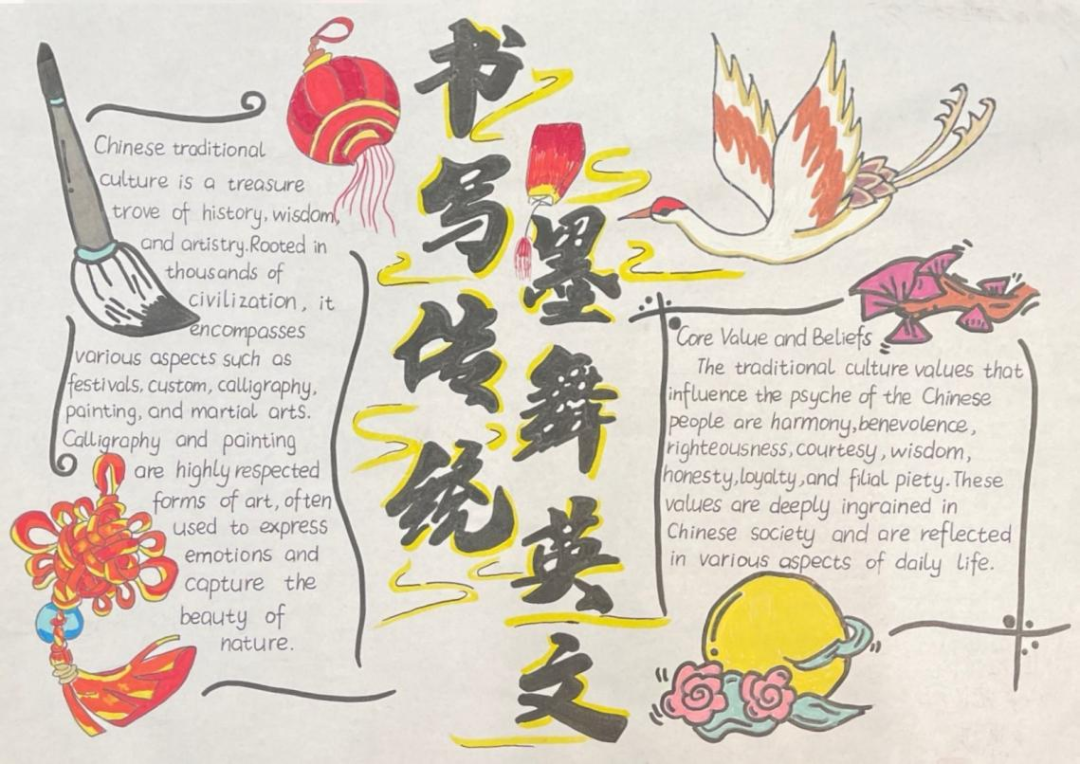 书写传统
墨舞英文
Chinese traditional
culture is a treasure
trove of history, wisdom,
and artistry.Rooted in
thousands of
civilization, it
encompasses
various aspects such as
festivals, custom, calligraphy,
painting, and martial arts.
Calligraphy and painting
are highly respected
forms of art, often
used to express
emotions and
capture the
beauty of
nature.
Core Value and Beliefs
The traditional culture values that
influence the psyche of the Chinese
people are harmony, benevolence,
righteousness, courtesy, wisdom,
honesty, loyalty, and filial piety. These
values are deeply ingrained in
Chinese society and are reflected
in various aspects of daily life.